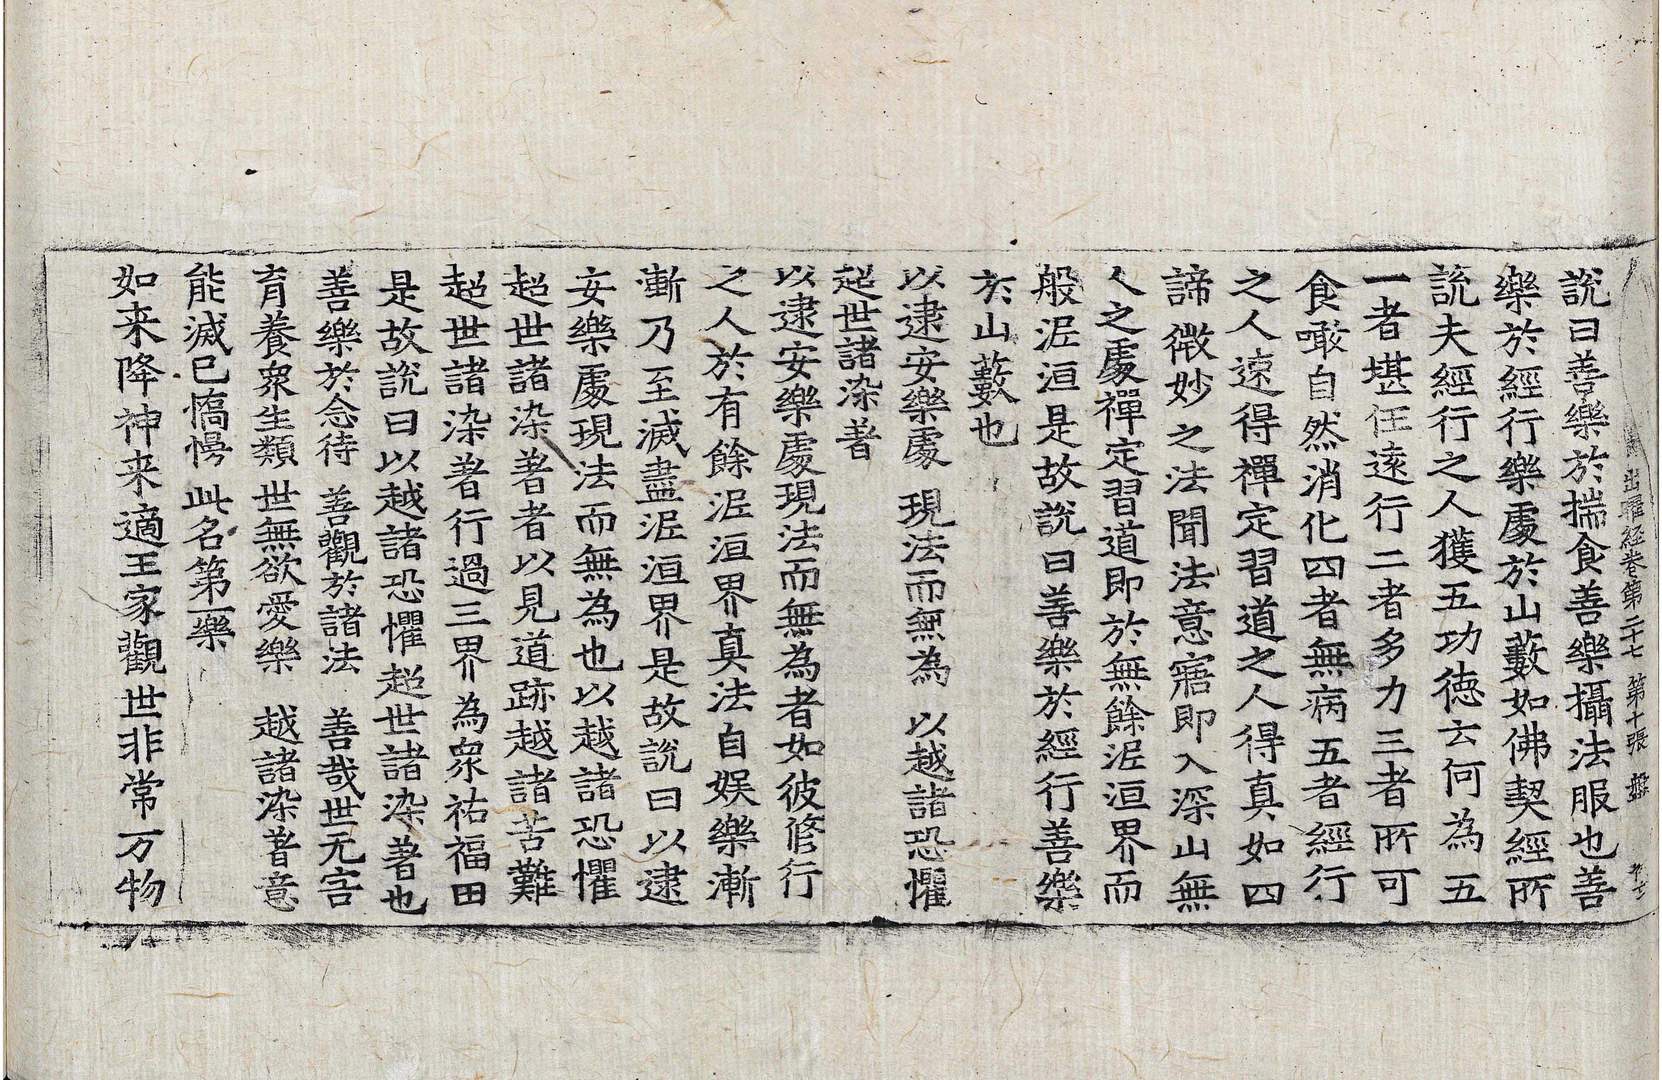 出曜経卷第二十七 第十張 盤
說曰善樂於揣食善樂攝法服也善
樂於經行樂處於山藪如佛契經所
説夫經行之人獲五功徳云何為五
一者堪任遠行二者多力三者所可
食噉自然消化四者無病五者經行
之人速得禪定習道之人得真如四
諦微妙之法聞法意寤即入深山無
人之處禪定習道即於無餘泥洹界而
般泥洹是故說曰善樂於經行善樂
於山藪也
以逮安樂處 現法而無為 以越諸恐懼
超世諸染著
以逮安樂處現法而無為者如彼修行
之人於有餘泥洹界真法自娛樂漸
漸乃至滅盡泥洹界是故說曰以逮
安樂處現法而無為也以越諸恐懼
超世諸染著者以見道跡越諸苦難
超世諸染著行過三界為衆祐福田
是故說曰以越諸恐懼超世諸染著也
善樂於念待 善觀於諸法 善哉世无害
育養衆生類 世無欲愛樂 越諸染著意
能滅己憍慢 此名第一樂
如来降神来適王家觀世非常万物